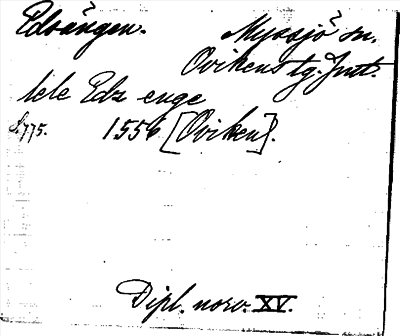 Edsängen. Myssjö sn.
Ovikens tg. Jmt.
lele Edz enge
s. 775. 1556 [Oviken].
Dipl. norv. XV.